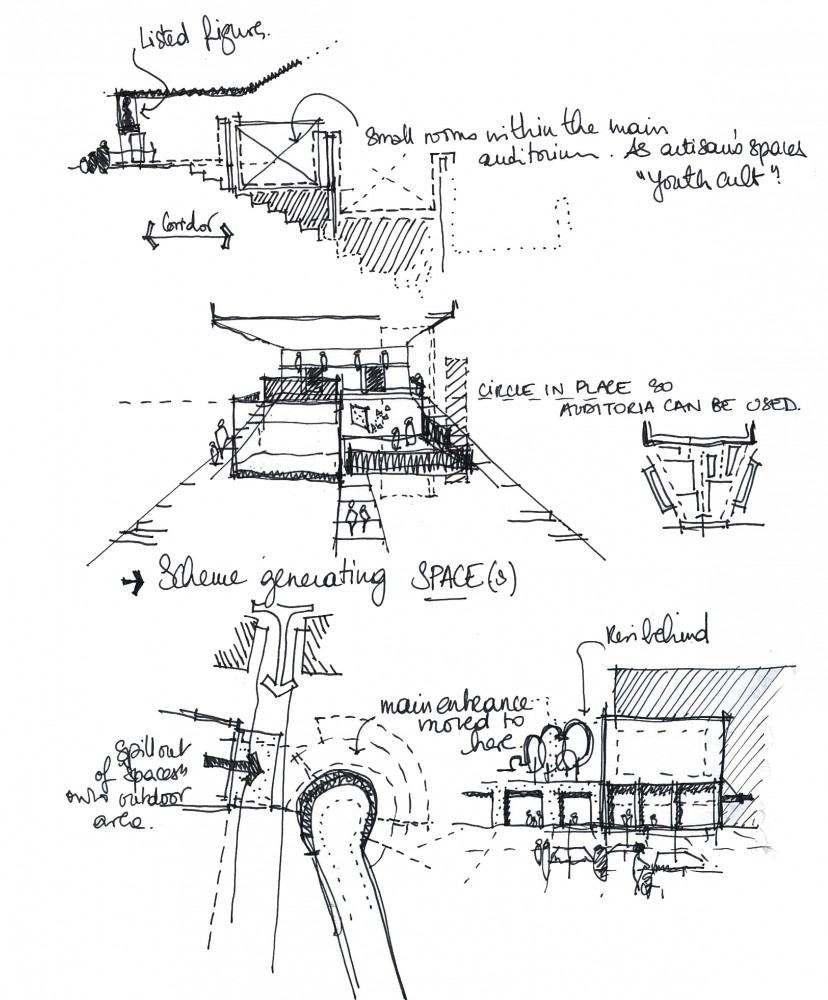 Listed figures.
Small rooms within the main
auditorium. As artisan's spaces
"Youth cult"?
Corridor
CIRCLE IN PLACE SO
AUDITORIA CAN BE USED.
→ Scheme generating SPACE(S)
Resi behind
main entrance
moved to
here
Spill out
of "spaces"
onto outdoor
area.